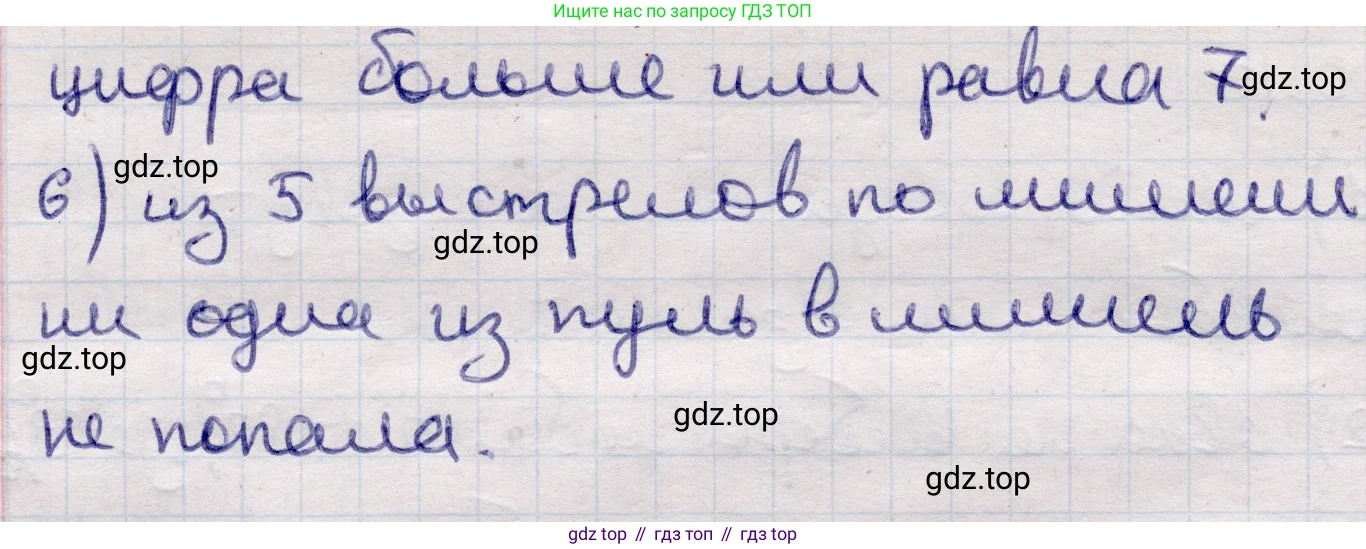 Ищите нас по запросу ГДЗ ТОП
цифра больше или равна 7.
gdz.top
gdz.top
6) из 5 выстрелов по мишени
gdz.top
ни одна из пуль в мишень
gdz.top
не попала.
gdz.top
gdz.top
gdz top // гдз топ // gdz top